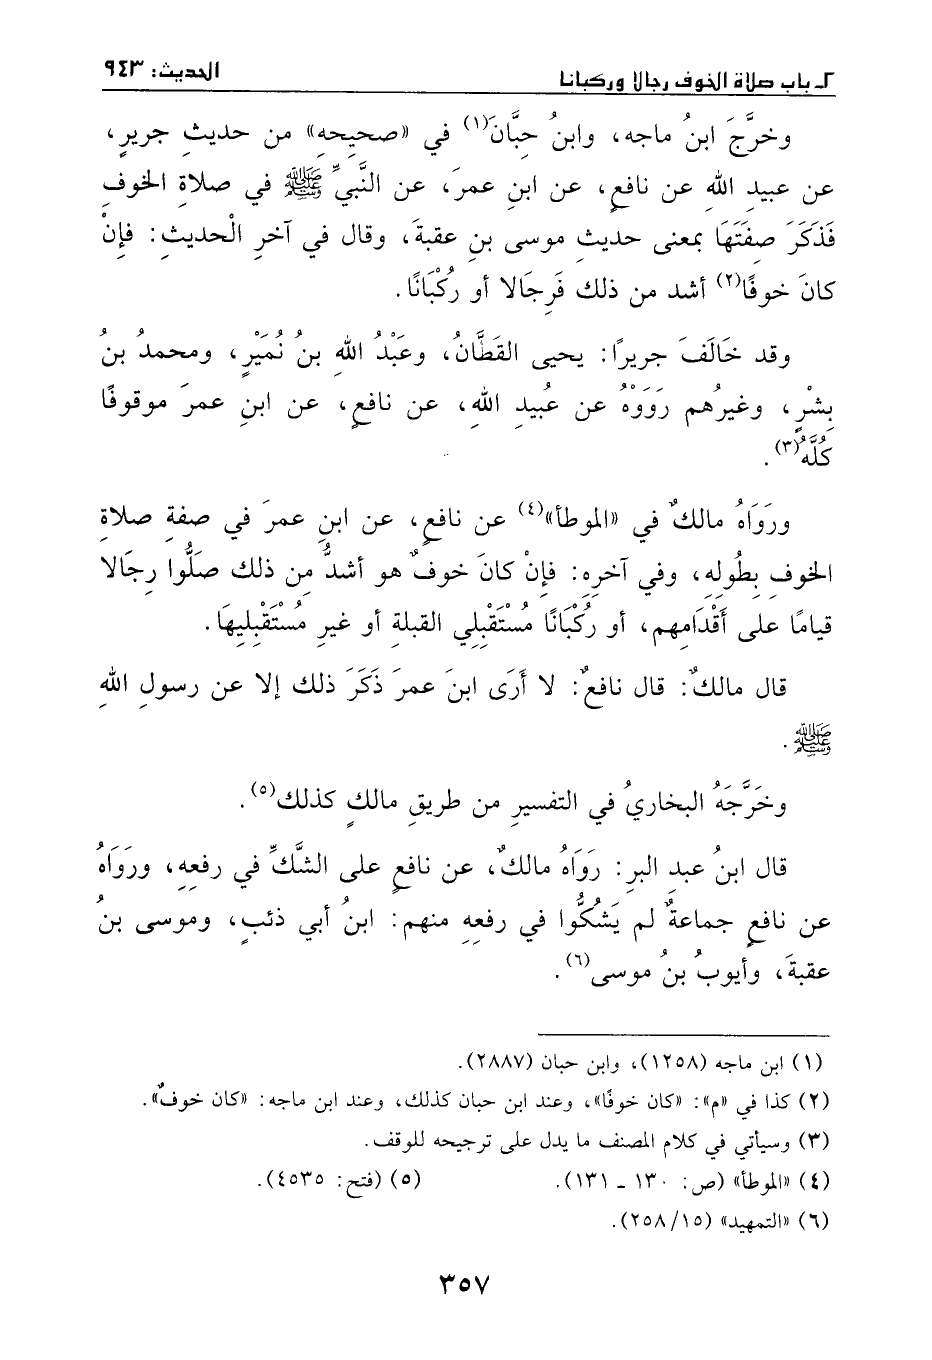 ٢ـ باب صلاة الخوف رجالا وركبانا الحديث: ٩٤٣
وخرَّجَ ابنُ ماجه، وابنُ حِبَّانَ(١) في «صحيحِهِ» من حديثِ جريرٍ،
عن عبيدِ اللهِ عن نافعٍ، عن ابنِ عمرَ، عن النَّبيِّ ﷺ في صلاةِ الخوفِ
فَذَكَرَ صِفَتَهَا بمعنى حديثِ موسى بنِ عقبةَ، وقال في آخرِ الْحديثِ: فإِنْ
كانَ خوفًا(٢) أشد من ذلك فَرِجَالا أو رُكْبَانًا.
وقد خَالَفَ جريرًا: يحيى القَطَّانُ، وعَبْدُ اللهِ بنُ نُمَيْرٍ، ومحمدُ بنُ
بِشْرٍ، وغيرُهم رَوَوْهُ عن عُبيدِ اللهِ، عن نافعٍ، عن ابنِ عمرَ موقوفًا
كُلَّهُ(٣).
ورَوَاهُ مالكٌ في «الموطأ»(٤) عن نافعٍ، عن ابنِ عمرَ في صفةِ صلاةِ
الخوفِ بِطُولِهِ، وفي آخرِهِ: فإِنْ كانَ خوفٌ هو أشدُّ مِن ذلك صَلُّوا رِجَالا
قيامًا على أَقْدَامِهم، أو رُكْبَانًا مُسْتَقْبِلِي القبلةِ أو غيرِ مُسْتَقْبِلِيهَا.
قال مالكٌ: قال نافعٌ: لا أَرَى ابنَ عمرَ ذَكَرَ ذلك إلا عن رسولِ اللهِ
ﷺ.
وخَرَّجَهُ البخاريُ في التفسيرِ من طريقِ مالكٍ كذلك(٥).
قال ابنُ عبد البرِ: رَوَاهُ مالكٌ، عن نافعٍ على الشَّكِّ في رفعِهِ، ورَوَاهُ
عن نافعٍ جماعةٌ لم يَشُكُّوا في رفعِهِ منهم: ابنُ أبي ذئبٍ، وموسى بنُ
عقبةَ، وأيوبُ بنُ موسى(٦).
(١) ابن ماجه (١٢٥٨)، وابن حبان (٢٨٨٧).
(٢) كذا في «م»: «كان خوفًا»، وعند ابن حبان كذلك، وعند ابن ماجه: «كان خوفٌ».
(٣) وسيأتي في كلام المصنف ما يدل على ترجيحه للوقف.
(٤) «الموطأ» (ص: ١٣٠ ـ ١٣١). (٥) (فتح: ٤٥٣٥).
(٦) «التمهيد» (٢٥٨/١٥).
٣٥٧